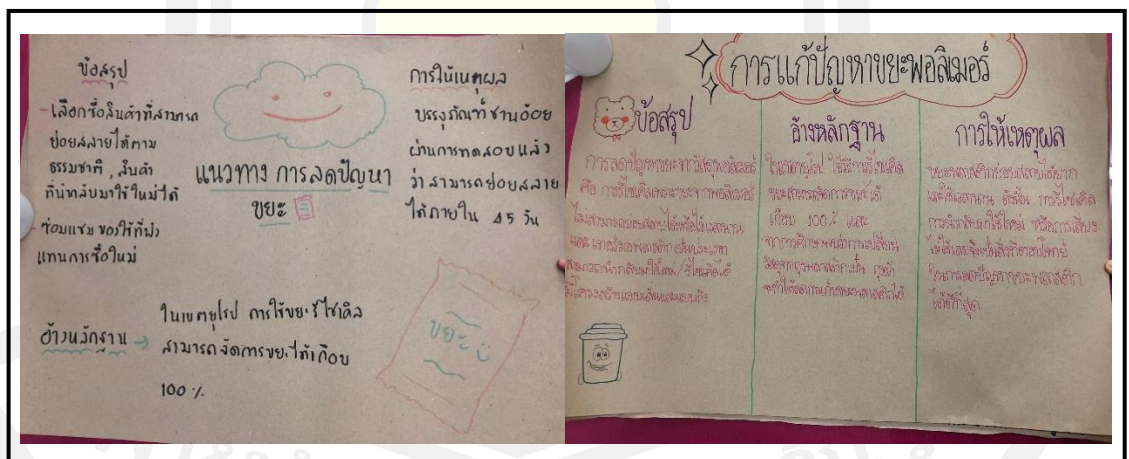 ข้อสรุป
- เลือกซื้อสินค้าที่สามารถ
ย่อยสลายได้ตาม
ธรรมชาติ , สินค้า
ที่นำกลับมาใช้ใหม่ได้
- ซ่อมแซม ของใช้ที่พัง
แทนการซื้อใหม่
แนวทาง การลดปัญหา
ขยะ
การให้เหตุผล
บรรจุภัณฑ์ชานอ้อย
ผ่านการทดสอบแล้ว
ว่าสามารถย่อยสลาย
ได้ภายใน 45 วัน
อ้างหลักฐาน →
ในเขตยุโรป การใช้ขยะรีไซเคิล
สามารถจัดการขยะได้เกือบ
100 %
ขยะ
การแก้ปัญหาขยะพอลิเมอร์
ข้อสรุป
การลดปัญหาขยะจากวัสดุพอลิเมอร์
คือ การรีไซเคิลขยะจากพอลิเมอร์
สามารถนำกลับมาใช้ใหม่/รีไซเคิลได้
อ้างหลักฐาน
ในแถบยุโรป ใช้วิธีการรีไซเคิล
ขยะสามารถจัดการขยะได้
เกือบ 100% และ
จากการศึกษาพบว่าการเปลี่ยน
วัสดุจากถุงพลาสติกเป็น ถุงผ้า
จะทำให้ลดการเกิดขยะพลาสติกได้
การให้เหตุผล
ขยะพลาสติกย่อยสลายได้ยาก
และใช้เวลานาน ดังนั้น การรีไซเคิล
การนำกลับมาใช้ใหม่ หรือการเลี่ยง
ในการลดปัญหาขยะพลาสติก
ได้ดีที่สุด